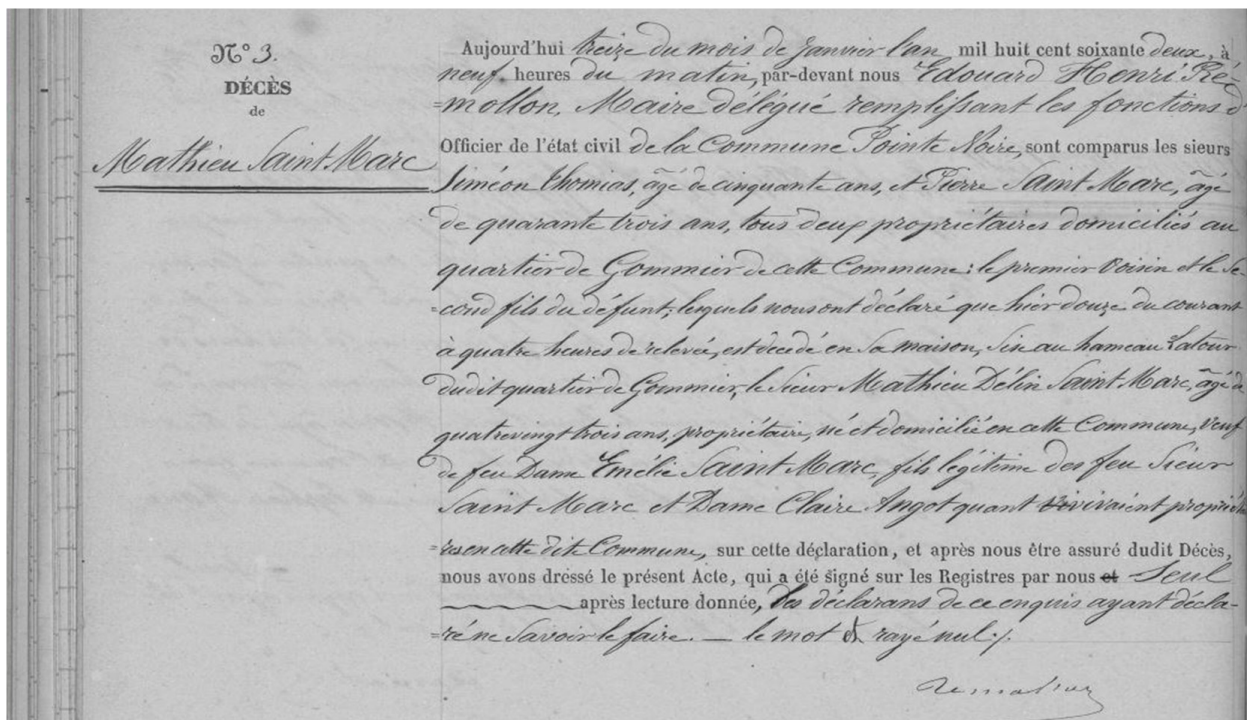 N° 3.
DÉCÈS
de
Mathieu Saint Marc
Aujourd'hui treize du mois de Janvier l'an mil huit cent soixante deux, à
neuf heures du matin, par-devant nous Edouard Henri Ré-
=mollon, Maire délégué remplissant les fonctions d
Officier de l'état civil de la Commune Pointe Noire, sont comparus les sieurs
Siméon Thomias, âgé de cinquante ans, et Pierre Saint Marc, âgé
de quarante trois ans, tous deux propriétaires domiciliés au
quartier de Gommier de cette Commune; le premier voisin et le Se-
=cond fils du défunt; lesquels nous ont déclaré que hier douze du courant
à quatre heures de relevée, est decédé en Sa maison, Sise au hameau Latour
dudit quartier de Gommier, le Sieur Mathieu Délin Saint Marc, âgé de
quatrevingt trois ans, propriétaire, né et domicilié en cette Commune, veuf
de feu Dame Emélie Saint Marc, fils légitime des feu Sieur
Saint Marc et Dame Claire Angot quant vivivaient propriétai
=res en cette dite Commune, sur cette déclaration, et après nous être assuré dudit Décès,
nous avons dressé le présent Acte, qui a été signé sur les Registres par nous et Seul
après lecture donnée, les déclarans de ce enquis ayant décla-
=ré ne Savoir le faire. — le mot et rayé nul ./.
Remollon